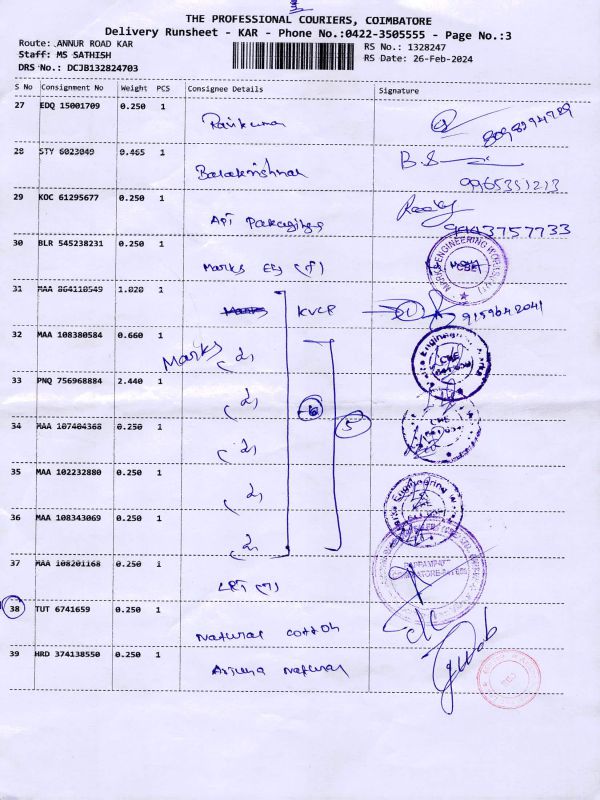 THE PROFESSIONAL COURIERS, COIMBATORE
Delivery Runsheet - KAR - Phone No.:0422-3505555 - Page No.:3
Route: ANNUR ROAD KAR
Staff: MS SATHISH
DRS No.: DCJB132824703
RS No.: 1328247
RS Date: 26-Feb-2024
S No Consignment No Weight PCS Consignee Details Signature
27 EDQ 15001709 0.250 1
Ravikumar
28 STY 6023049 0.465 1
Balakrishnan B.S
9965351213
29 KOC 61295677 0.250 1
API Packagings
9943757733
30 BLR 545238231 0.250 1
Marks
31 MAA 864110549 1.020 1
KVCP 9159642041
32 MAA 108380584 0.660 1
Marks
33 PNQ 756968884 2.440 1
5
34 MAA 107404368 0.250 1
35 MAA 102232880 0.250 1
36 MAA 108343069 0.250 1
37 MAA 108201168 0.250 1
38 TUT 6741659 0.250 1
Natural cotton
39 HRD 374138550 0.250 1
Arjuna Natural